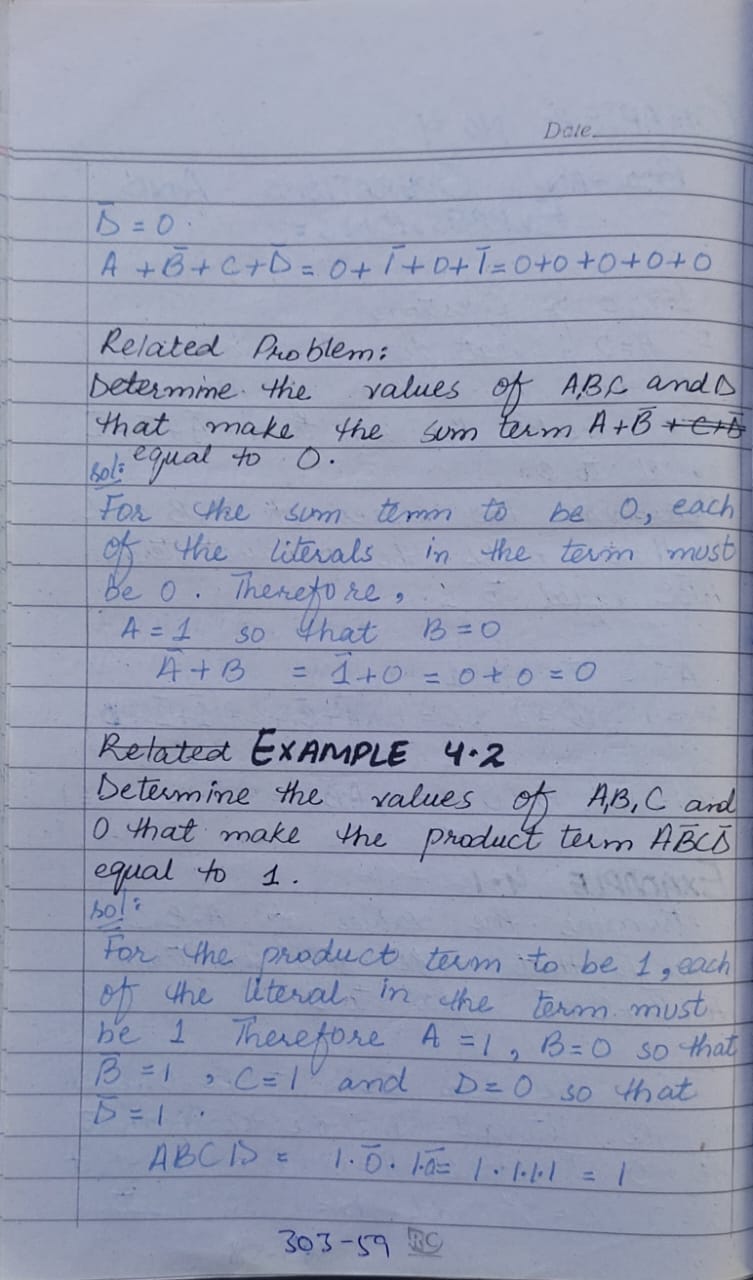 Date
D̅ = 0.
A + B̅ + C + D̅ = 0 + 1̅ + 0 + 1̅ = 0+0+0+0+0
Related Problem:
Determine the values of A,B,C and D
that make the sum term A + B̅ + C + D̅
equal to 0.
Sol:
For the sum term to be 0, each
of the literals in the term must
be 0. Therefore,
A = 1 so that B = 0
A̅ + B = 1̅ + 0 = 0 + 0 = 0
Related EXAMPLE 4.2
Determine the values of A,B,C and
0 that make the product term AB̅CD̅
equal to 1.
Sol:
For the product term to be 1, each
of the literal in the term must
be 1 Therefore A = 1, B = 0 so that
B̅ = 1, C = 1 and D = 0 so that
D̅ = 1.
ABCD = 1.0̅.1.0̅ = 1.1.1.1 = 1
303-59 RC